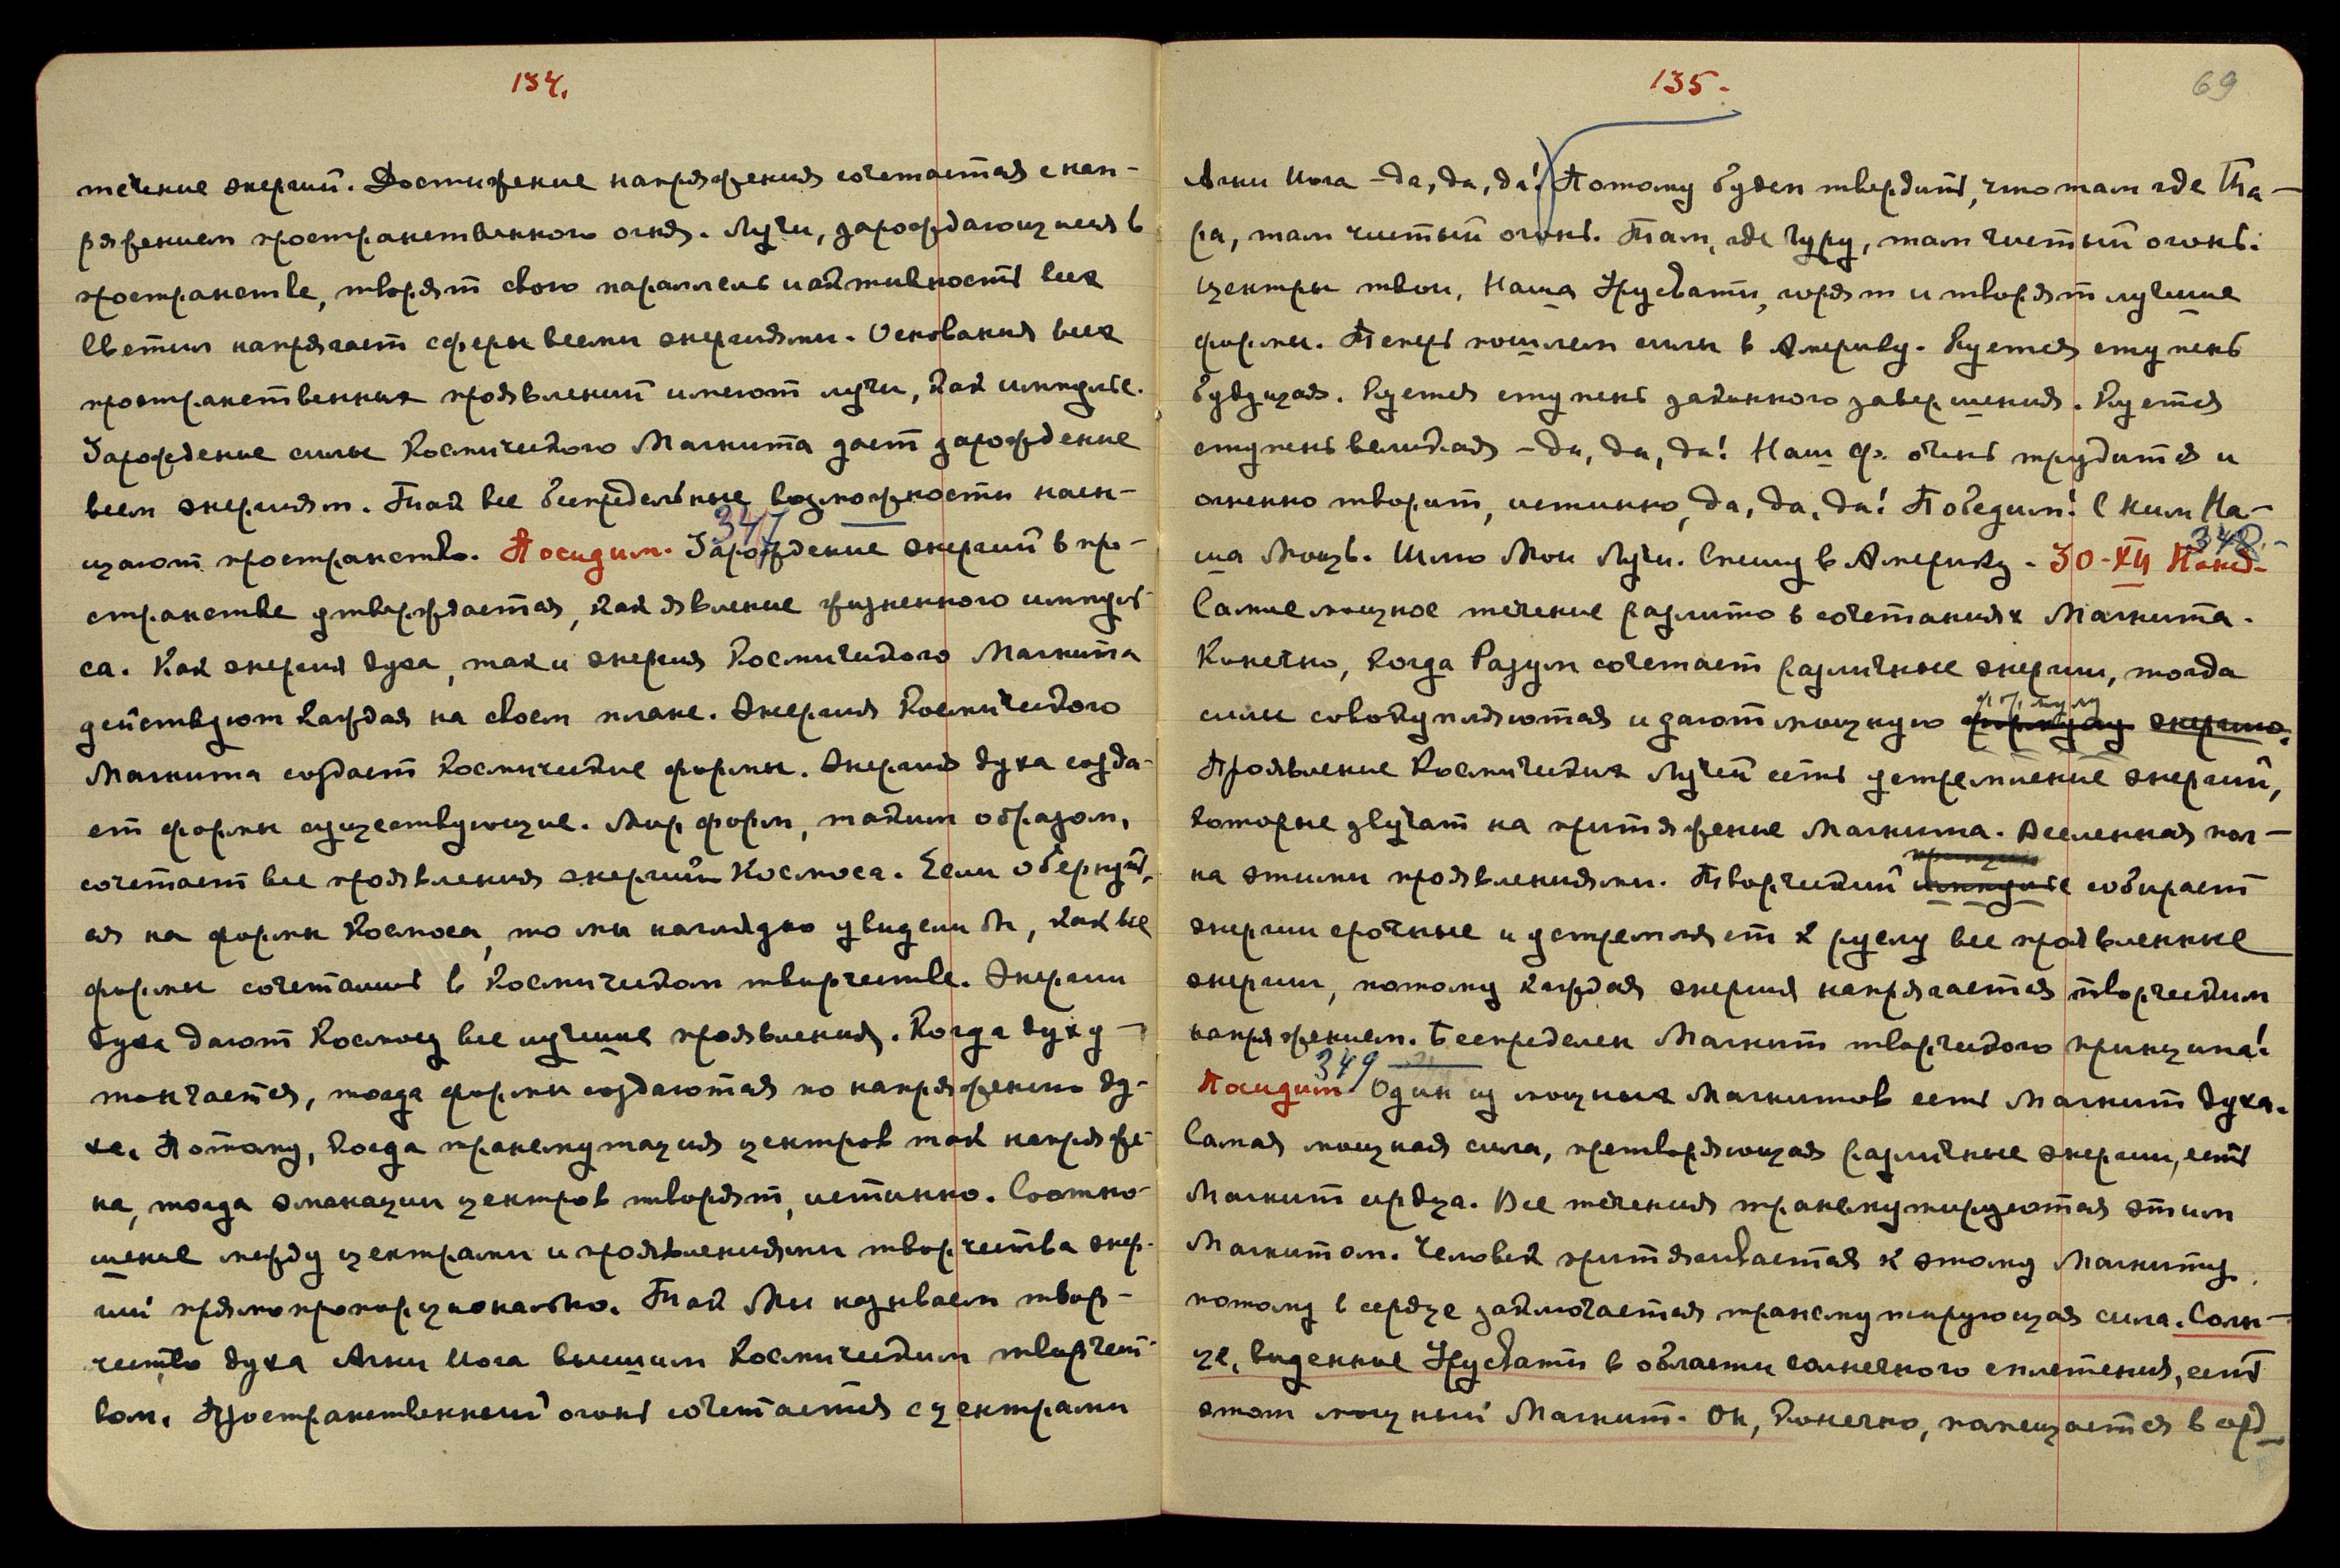 134.
течение энергий. Достижение напряжения сочетается с нап-
ряжением пространственного огня. Лучи, зарождающиеся в
пространстве, творят свою параллель и активность всех
Светил напрягает сферы всеми энергиями. Основания всех
пространственных проявлений имеют лучи, как импульс.
Зарождение силы Космического Магнита дает зарождение
всем энергиям. Так все беспредельные возможности насы-
347
щают пространство. Посидим. Зарождение энергий в про-
странстве утверждается, как явление жизненного импуль-
са. Как энергия духа, так и энергия Космического Магнита
действуют каждая на своем плане. Энергия Космического
Магнита создает космические формы. Энергия духа созда-
ет формы существующие. Мир форм, таким образом,
сочетает все проявления энергий Космоса. Если обернуть-
ся на формы Космоса, то мы наглядно увидели бы, как все
формы сочетались в Космическом творчестве. Энергии
духа дают Космосу все лучшие проявления. Когда дух у-
тончается, тогда формы создаются по напряжению ду-
ха. Потому, когда трансмутация центров так напряже-
на, тогда эманации центров творят, истинно. Соотно-
шение между центрами и проявлениями творчества энер-
гий прямопропорционально. Так Мы называем твор-
чество духа Агни Йога высшим Космическим творчест-
вом. Пространственный огонь сочетается с центрами
135.
69
Агни Йога – да, да, да! Потому будем твердить, что там где Та-
ра, там чистый огонь. Там, где Гуру, там чистый огонь.
Центры твои, Наша Урусвати, горят и творят лучшие
формы. Теперь пошлем силы в Америку. Куется ступень
будущая. Куется ступень законного завершения. Куется
ступень великая – да, да, да! Наш Ф. очень трудится и
огненно творит, истинно, да, да, да! Победим! С ним На-
348.
ша Мощь. Шлю Мои Лучи. Спешу в Америку. 30-XII Понед.
Самое мощное течение разлито в сочетаниях Магнита.
Конечно, когда Разум сочетает различные энергии, тогда
формулу
силы совокупляются и дают мощную формулу энергию.
Проявление Космических Лучей есть устремление энергий,
которые звучат на притяжение Магнита. Вселенная пол-
принцип
на этими проявлениями. Творческий импульс собирает
энергии срочные и устремляет к руслу все проявленные
энергии, потому каждая энергия напрягается творческим
напряжением. Беспределен Магнит творческого принципа!
349
Посидим Один из мощных Магнитов есть Магнит духа.
Самая мощная сила, претворяющая различные энергии, есть
Магнит сердца. Все течения трансмутируются этим
Магнитом. Человек притягивается к этому Магниту,
потому в сердце заключается трансмутирующая сила. Солн-
це, виденное Урусвати в области солнечного сплетения, есть
этот мощный Магнит. Он, конечно, помещается в серд-